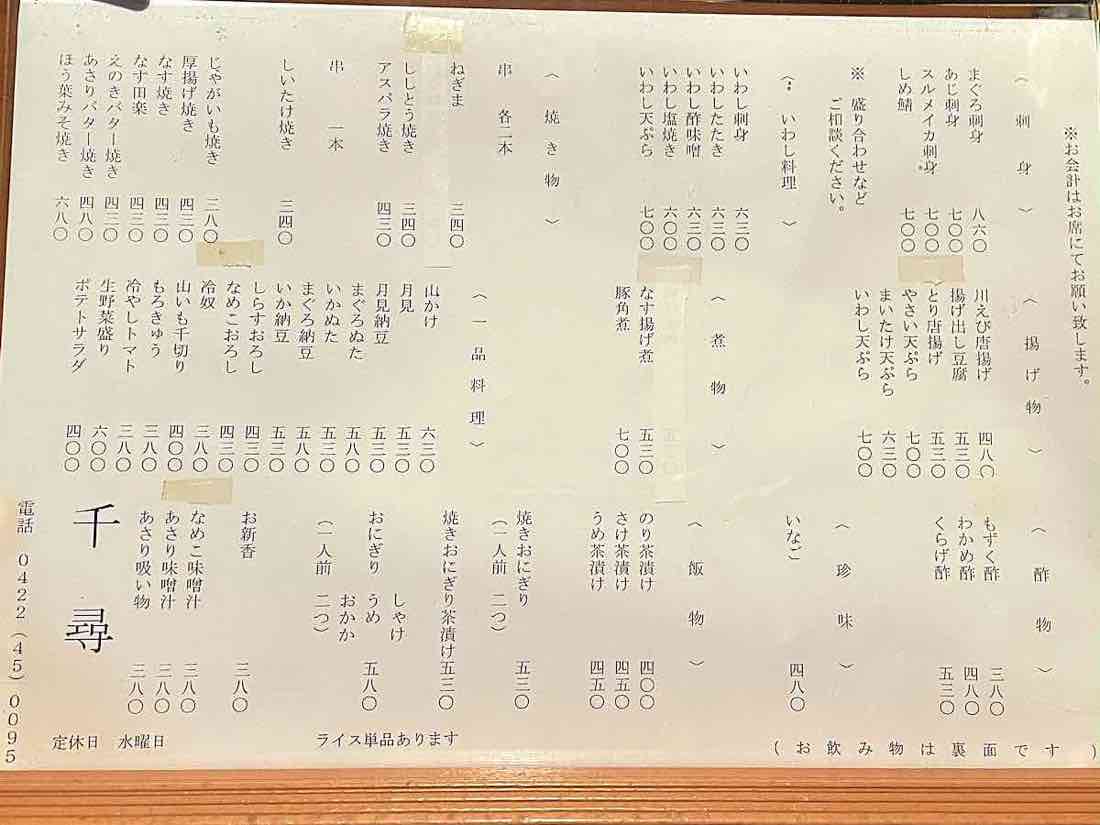 ※お会計はお席にてお願い致します。
〈 刺 身 〉
まぐろ刺身 八六〇
あじ刺身 七〇〇
スルメイカ刺身 七〇〇
しめ鯖 七〇〇
※ 盛り合わせなど
ご相談ください。
〈: いわし料理 〉
いわし刺身 六三〇
いわしたたき 六三〇
いわし酢味噌 六三〇
いわし塩焼き 六〇〇
いわし天ぷら 七〇〇
〈 焼 き 物 〉
串 各二本
ねぎま 三四〇
ししとう焼き 三四〇
アスパラ焼き 四三〇
串 一本
しいたけ焼き 三四〇
じゃがいも焼き 三八〇
厚揚げ焼き 四三〇
なす焼き 四三〇
なす田楽 四三〇
えのきバター焼き 四三〇
あさりバター焼き 四八〇
ほう葉みそ焼き 六八〇
〈 揚 げ 物 〉
川えび唐揚げ 四八〇
揚げ出し豆腐 五三〇
とり唐揚げ 五三〇
やさい天ぷら 七〇〇
まいたけ天ぷら 六三〇
いわし天ぷら 七〇〇
〈 煮 物 〉
なす揚げ煮 五三〇
豚角煮 七〇〇
〈 一 品 料 理 〉
山かけ 六三〇
月見 五三〇
月見納豆 五三〇
まぐろぬた 五八〇
いかぬた 五三〇
まぐろ納豆 五八〇
いか納豆 五三〇
しらすおろし 四三〇
なめこおろし 四三〇
冷奴 三八〇
山いも千切り 四〇〇
もろきゅう 三八〇
冷やしトマト 三八〇
生野菜盛り 六〇〇
ポテトサラダ 四〇〇
〈 酢 物 〉
もずく酢 三八〇
わかめ酢 四八〇
くらげ酢 五三〇
〈 珍 味 〉
いなご 四八〇
〈 飯 物 〉
のり茶漬け 四〇〇
さけ茶漬け 四五〇
うめ茶漬け 四五〇
焼きおにぎり 五三〇
(一人前 二つ)
焼きおにぎり茶漬け 五三〇
おにぎり しゃけ
うめ 五八〇
おかか
(一人前 二つ)
お新香 三八〇
なめこ味噌汁 三八〇
あさり味噌汁 三八〇
あさり吸い物 三八〇
千 尋
電話 0422(45)0095
定休日 水曜日
ライス単品あります
(お飲み物は裏面です)